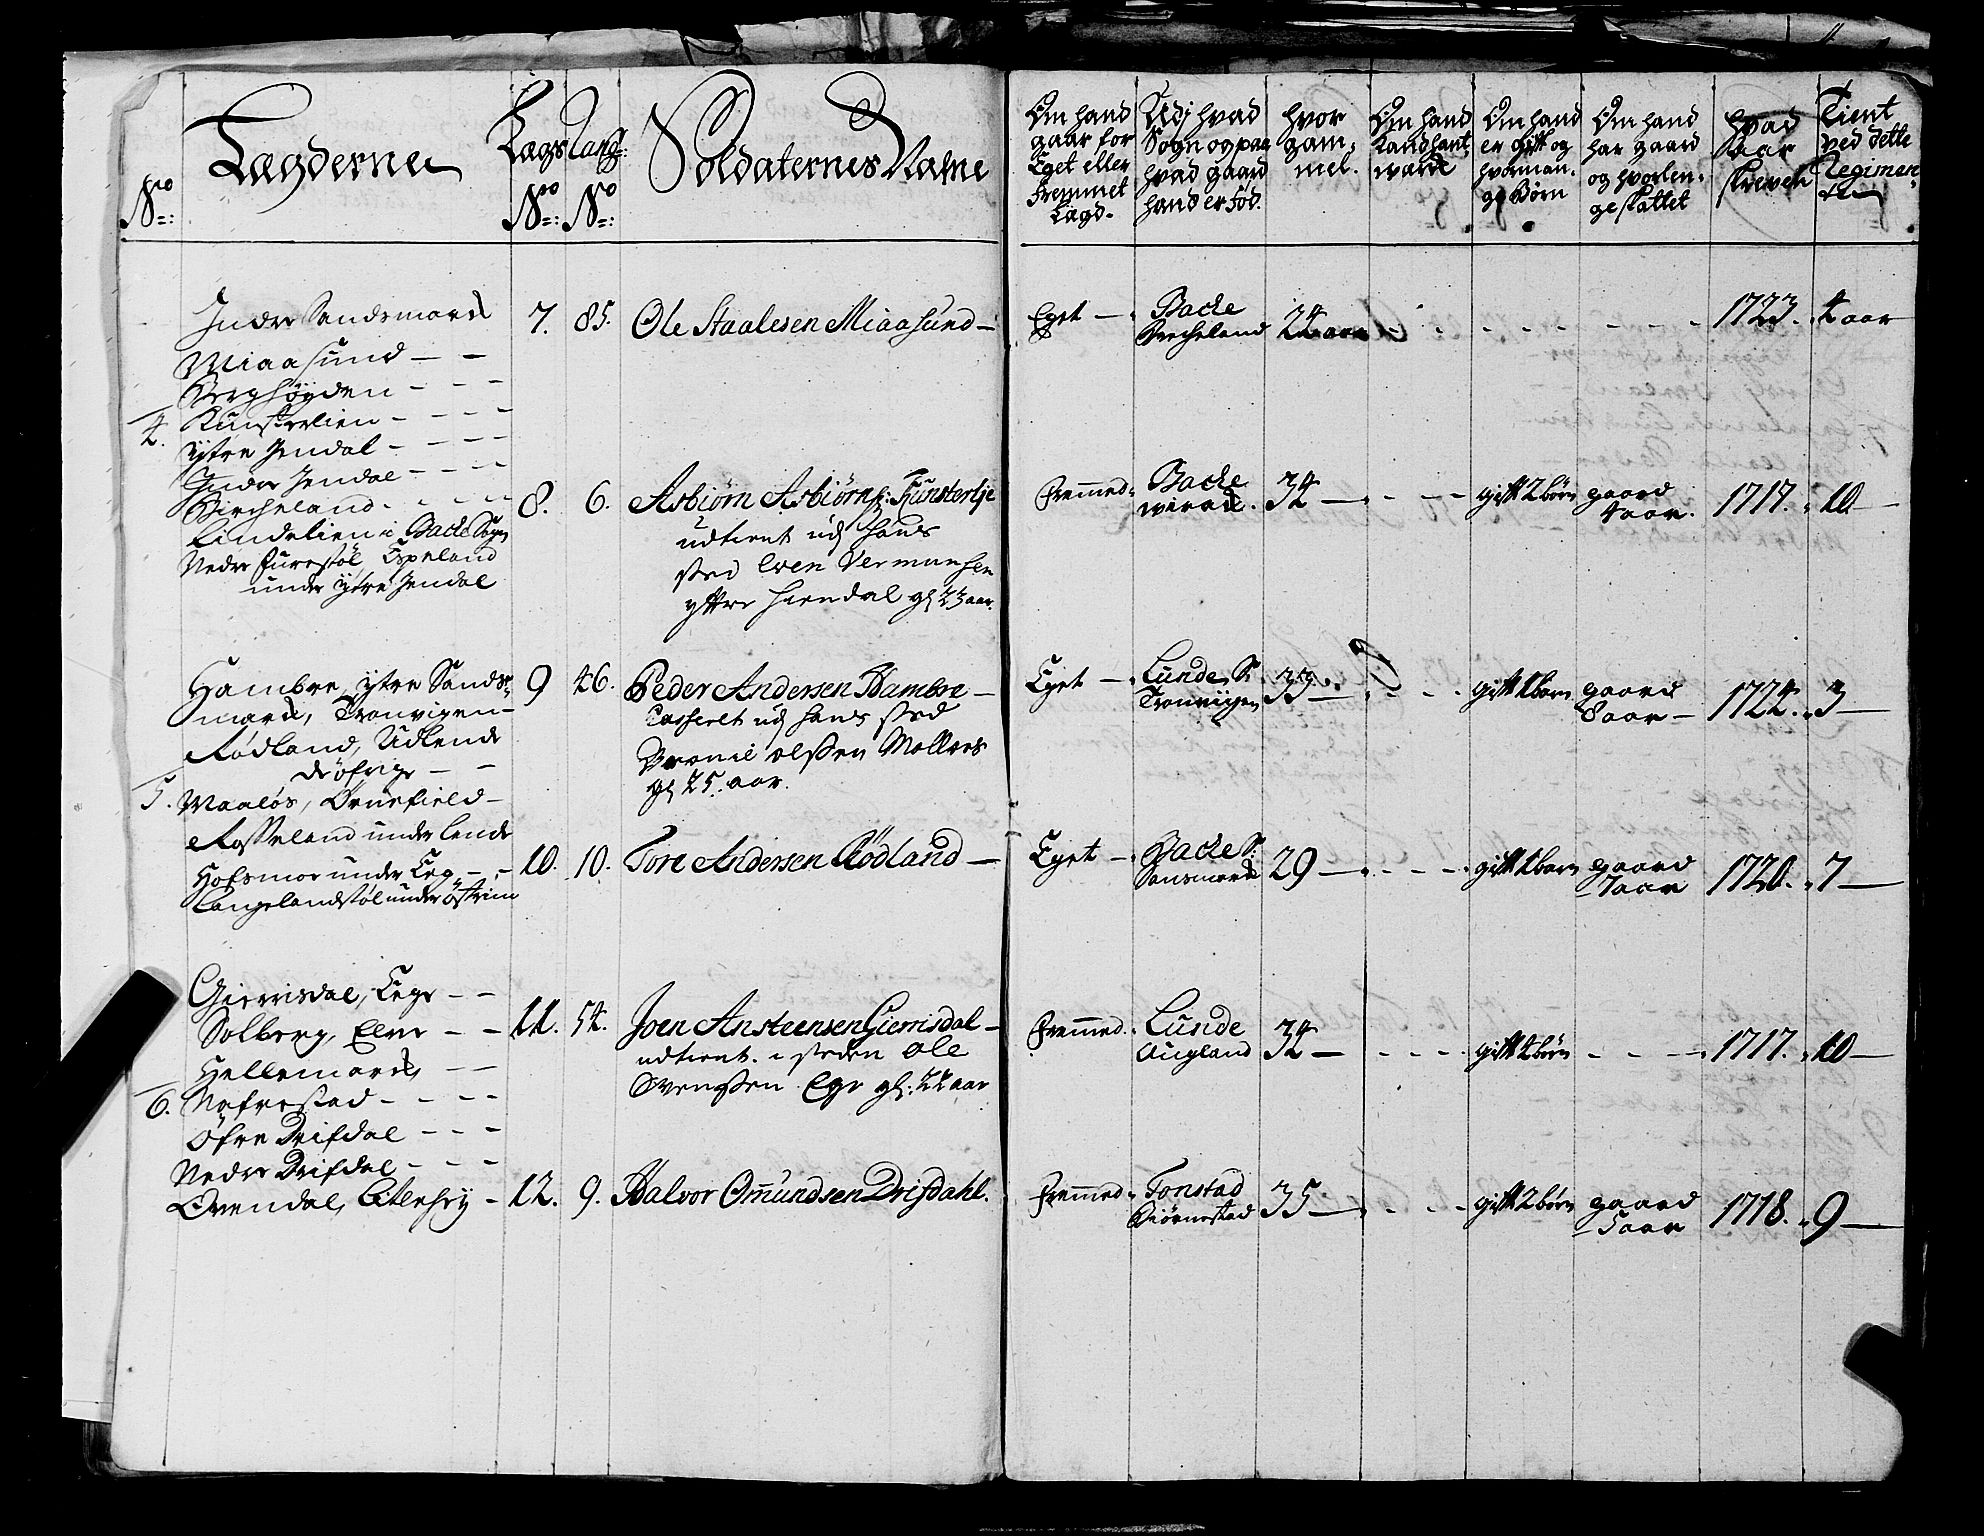 No
Lægderne
Lægs
No
Rang
No
Soldaternes Nafne
Om hand
gaar for
Eget eller
Fremmet
Lægd
Udj hvad
Sogn og paa
hvad gaard
hand er fød.
hvor
gam-
mel.
Om hand
Landhant
værck
Om hand
er gift og
hvorman-
ge Børn
Om hand
har gaard
og hvorlen-
ge skattet
hvad
aar
skreven
Tient
ved dette
Regimen-
te
4.
Inder Sandsmarck
Miaasund
Berghöyden
Kunsterlien
ÿtre Jendal
Inder Jendal
Bircheland
Lindelien i Backe Sogn
Neder Furestøl Espeland
under ÿtre Jendal
7. 85. Ole Staalesen Miaasund Eget Backe
Bircheland 24 aar 1723. 4 aar
8. 6. Asbiørn Asbiørns: Kunsterlje
udtient udj hans
sted Even Vermunsen
yttre hiendal gl 23 aar.
Fremmed Backe
34 gift 2 børn gaard
4 aar. 1717. 10
5.
Hambre, ÿtre Sands-
marck, Tronvigen
Rødland, Udlend
Maaløs, Ørnefield
Rosseland under Lende
Hofsmoe under Eeg
Langelandstøl under Östrim
9 46. Peder Andersen Hambre
Casseret udj hans sted
olssen Mollers
gl 25. aar.
Eget Lunde S:
Tronviigen 33 gift 1 barn gaard
8 aar 1724. 3
10. 10. Tore Andersen Rødland Eget Backe S:
Sansmarck 29 gift 1 barn gaard
7 aar 1720. 7
6.
Gierrisdal, Eege
Solberg, Elve
Hellemarck
Nafrestad
Öfre Drifdal
Neder Drifdal
Ovendal, Litlehey
11. 54. Joen Ansteensen Gierrisdal
udtient i steden Ole
Svenssen Ege gl: 22 aar
Fremmed Lunde
Augland 34 gift 4 børn 1717. 10
12. 9. Halvor Omundsen Drifdahl. Fremmed Tonstad
Biørnestad 35 gift 2 børn gaard
5 aar 1718. 9